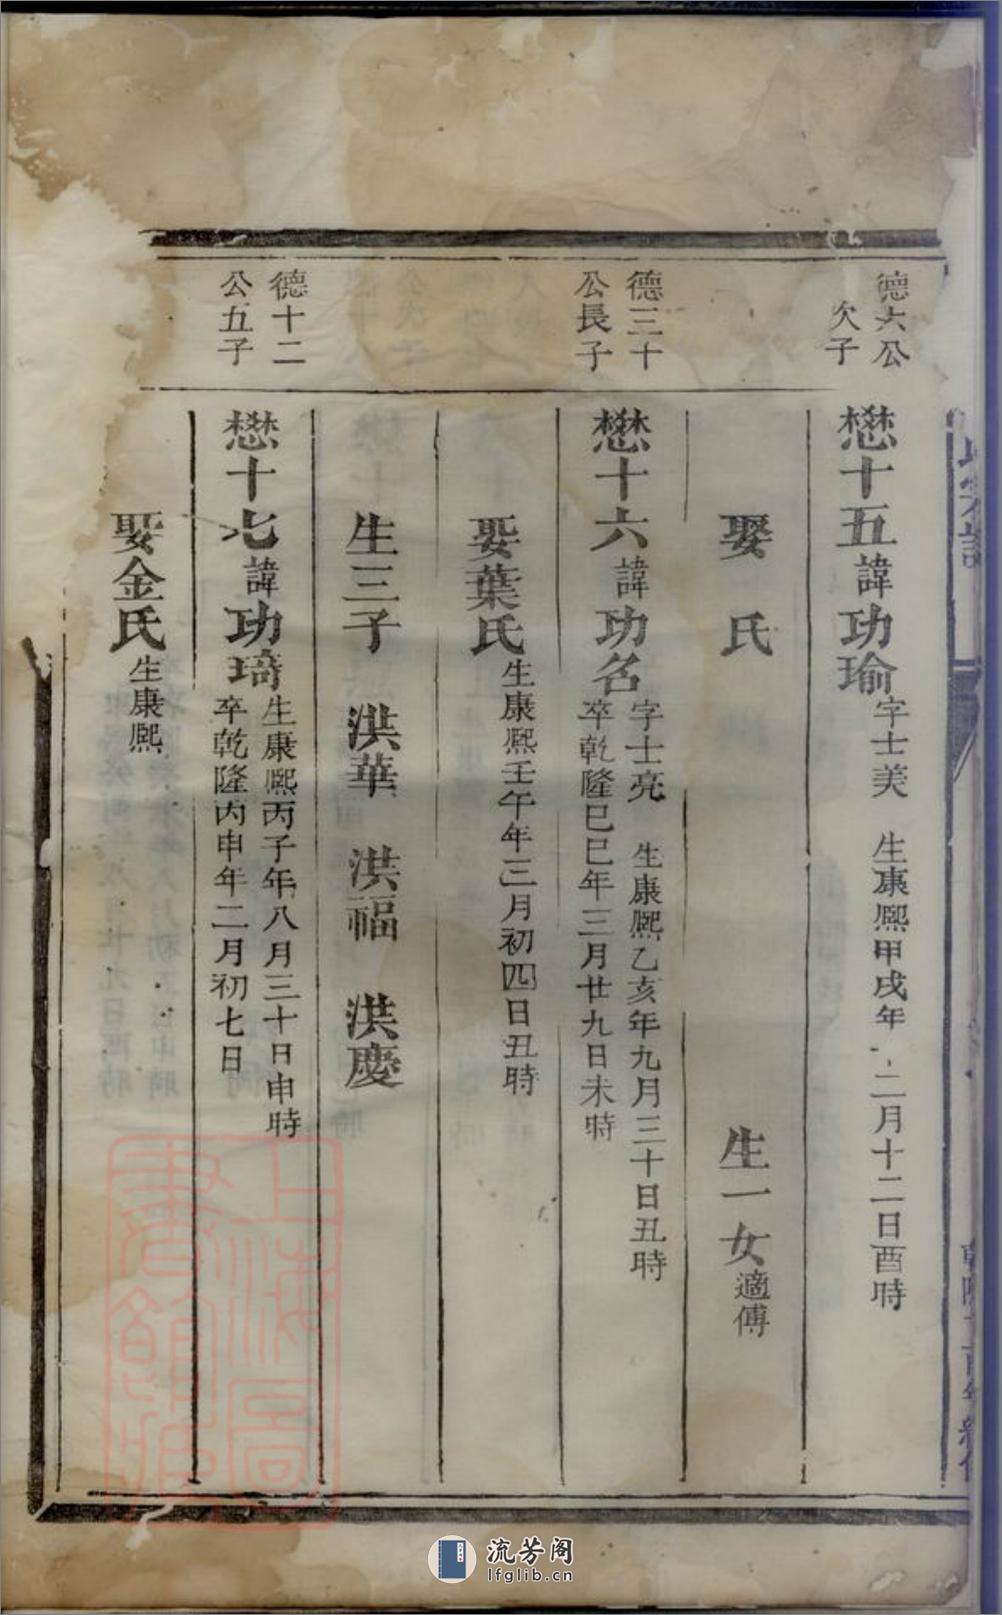 德六公
次子
懋十五諱功瑜字士美 生康熙甲戌年十二月十二日酉時
娶 氏 生一女適傅
德三十
公長子
懋十六諱功名
字士亮 生康熙乙亥年九月三十日丑時
卒乾隆己巳年三月廿九日未時
娶葉氏生康熙壬午年三月初四日丑時
生三子 洪華 洪福 洪慶
德十二
公五子
懋十七諱功琦
生康熙丙子年八月三十日申時
卒乾隆丙申年二月初七日
娶金氏生康熙
上海圖
書館藏
流芳阁
lfglib.cn